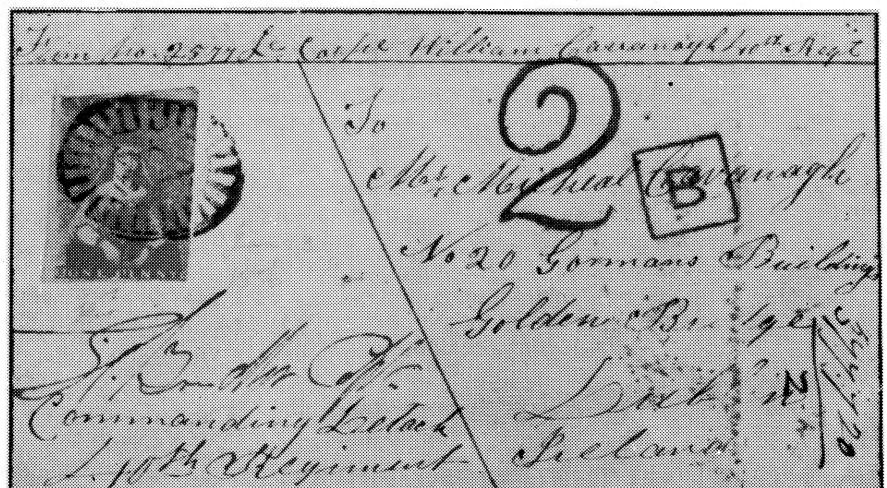 From No. 2577 Le Corpl William Cavanagh 40th Regt
2
To
B
Mr. Micheal Cavanagh
No 20 Gormans Buildings
Golden Bridge
Dublin
Ireland
Commanding Detach
40th Regiment